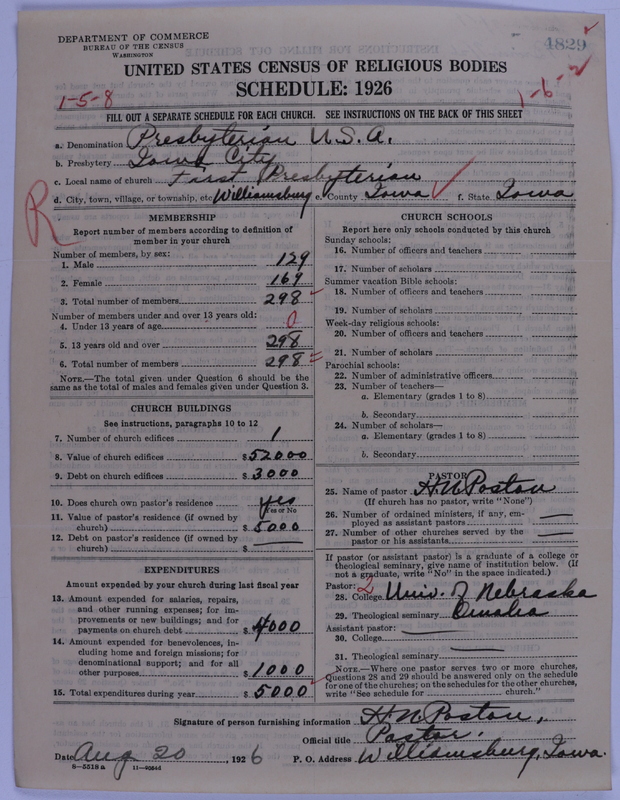 DEPARTMENT OF COMMERCE
BUREAU OF THE CENSUS
WASHINGTON
4829
UNITED STATES CENSUS OF RELIGIOUS BODIES
SCHEDULE: 1926
1-5-8
1-6-2
FILL OUT A SEPARATE SCHEDULE FOR EACH CHURCH. SEE INSTRUCTIONS ON THE BACK OF THIS SHEET
a. Denomination Presbyterian U.S.A.
b. Presbytery Iowa City
c. Local name of church First Presbyterian
d. City, town, village, or township, etc Williamsburg e. County Iowa f. State Iowa
R
MEMBERSHIP
Report number of members according to definition of member in your church
Number of members, by sex:
1. Male 129
2. Female 169
3. Total number of members 298
Number of members under and over 13 years old:
4. Under 13 years of age 0
5. 13 years old and over 298
6. Total number of members 298
NOTE.—The total given under Question 6 should be the same as the total of males and females given under Question 3.
CHURCH BUILDINGS
See instructions, paragraphs 10 to 12
7. Number of church edifices 1
8. Value of church edifices $52000
9. Debt on church edifices $3000
10. Does church own pastor's residence yes
Yes or No
11. Value of pastor's residence (if owned by church) $5000
12. Debt on pastor's residence (if owned by church) $
EXPENDITURES
Amount expended by your church during last fiscal year
13. Amount expended for salaries, repairs, and other running expenses; for improvements or new buildings; and for payments on church debt $4000
14. Amount expended for benevolences, including home and foreign missions; for denominational support; and for all other purposes $1000
15. Total expenditures during year $5000
CHURCH SCHOOLS
Report here only schools conducted by this church
Sunday schools:
16. Number of officers and teachers
17. Number of scholars
Summer vacation Bible schools:
18. Number of officers and teachers
19. Number of scholars
Week-day religious schools:
20. Number of officers and teachers
21. Number of scholars
Parochial schools:
22. Number of administrative officers
23. Number of teachers—
a. Elementary (grades 1 to 8)
b. Secondary
24. Number of scholars—
a. Elementary (grades 1 to 8)
b. Secondary
PASTOR
25. Name of pastor H.N. Poston
(If church has no pastor, write "None")
26. Number of ordained ministers, if any, employed as assistant pastors
27. Number of other churches served by the pastor or his assistants
If pastor (or assistant pastor) is a graduate of a college or theological seminary, give name of institution below. (If not a graduate, write "No" in the space indicated.)
Pastor: 2
28. College Univ. of Nebraska
29. Theological seminary Omaha
Assistant pastor:
30. College
31. Theological seminary
NOTE.—Where one pastor serves two or more churches, Questions 28 and 29 should be answered only on the schedule for one of the churches; on the schedules for the other churches, write "See schedule for church."
Signature of person furnishing information H.N. Poston,
Official title Pastor.
Date Aug 20, 1926 P. O. Address Williamsburg, Iowa.
8-5518a